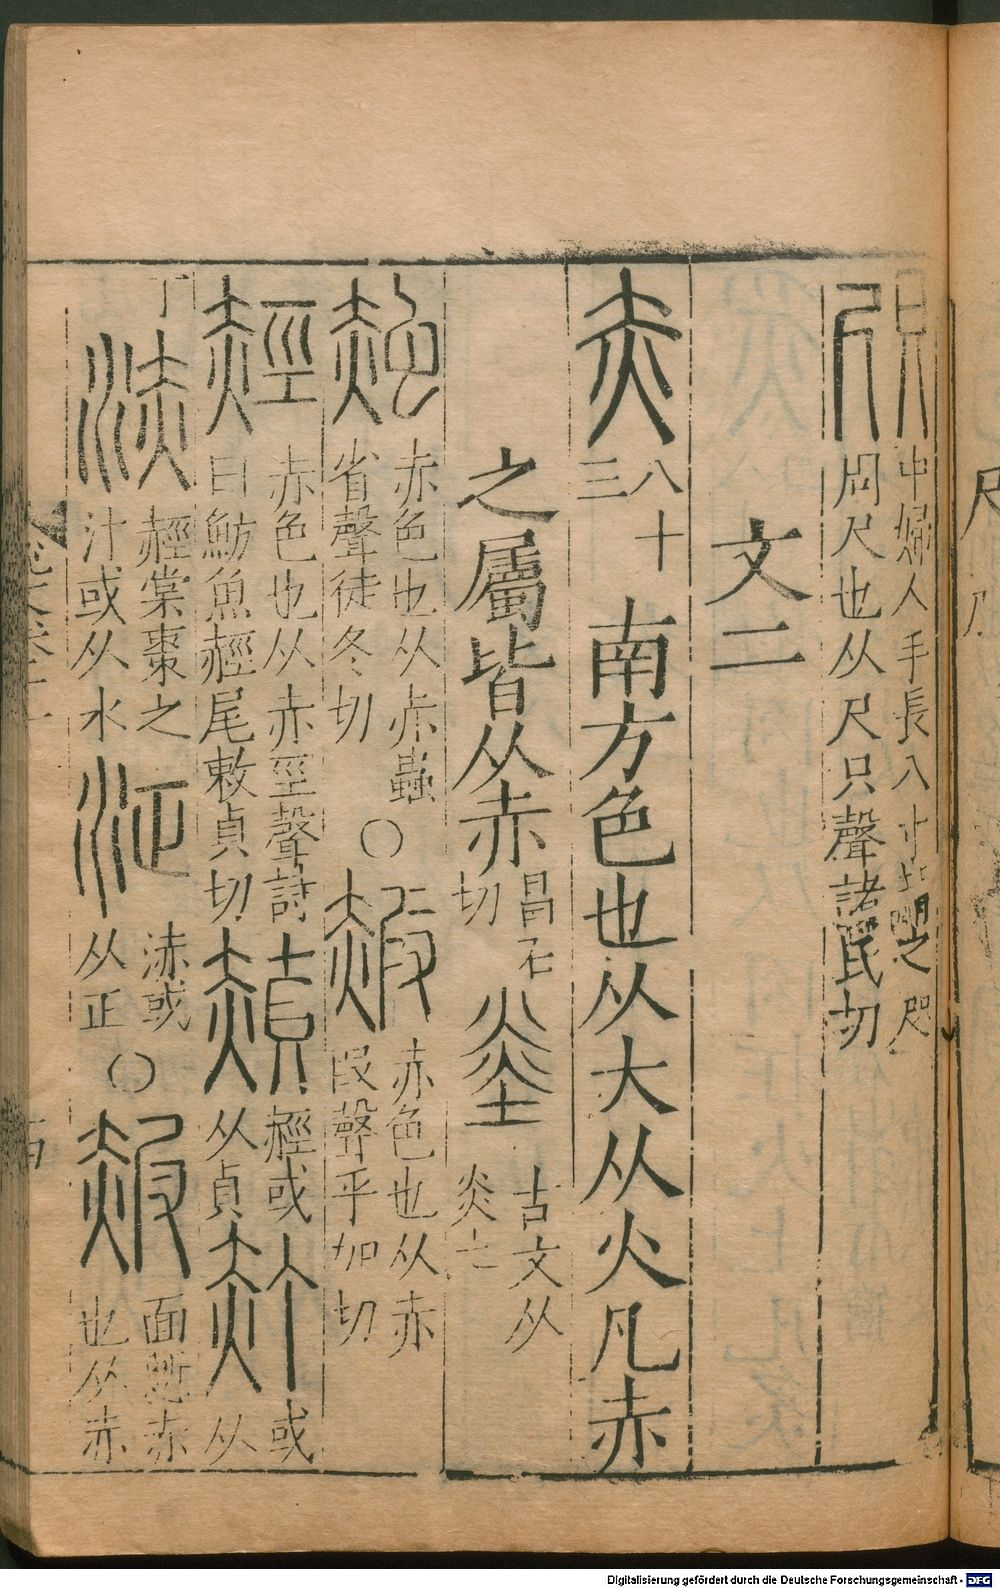 咫
中婦人手長八寸謂之咫
周尺也从尺只聲諸氏切
文二
赤
八十
三
南方色也从大从火凡赤
之屬皆从赤
昌石
切
烾
古文从
炎土
赨
赤色也从赤蟲
省聲徒冬切
○
赮
赤色也从赤
叚聲乎加切
赬
赤色也从赤巠聲詩
曰魴魚赬尾敕貞切
赬
赬或
从貞
䞓
或
从
丁
浾
赬棠棗之
汁或从水
泟
浾或
从正
○
赧
面慙赤
也从赤
Digitalisierung gefördert durch die Deutsche Forschungsgemeinschaft - DFG